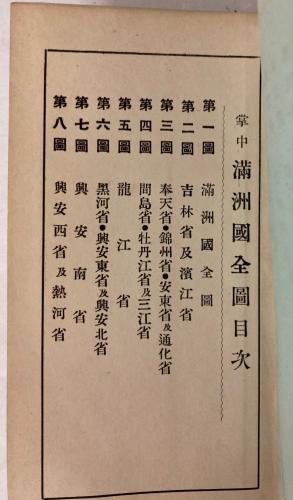 掌中 滿洲國全圖目次
第一圖 滿洲國全圖
第二圖 吉林省及濱江省
第三圖 奉天省●錦州省●安東省及通化省
第四圖 間島省●牡丹江省及三江省
第五圖 龍江省
第六圖 黑河省●興安東省及興安北省
第七圖 興安南省
第八圖 興安西省及熱河省